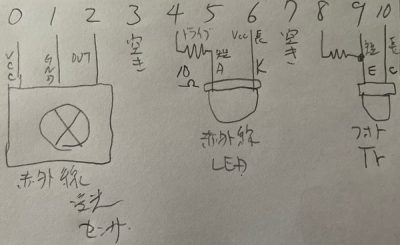 0 1 2 3 4 5 6 7 8 9 10
VCC
GND
OUT
空き
ドライブ
10Ω
短
A
Vcc
長
K
空き
短
E
長
C
赤外線
受光
センサ
赤外線
LED
フォト
Tr